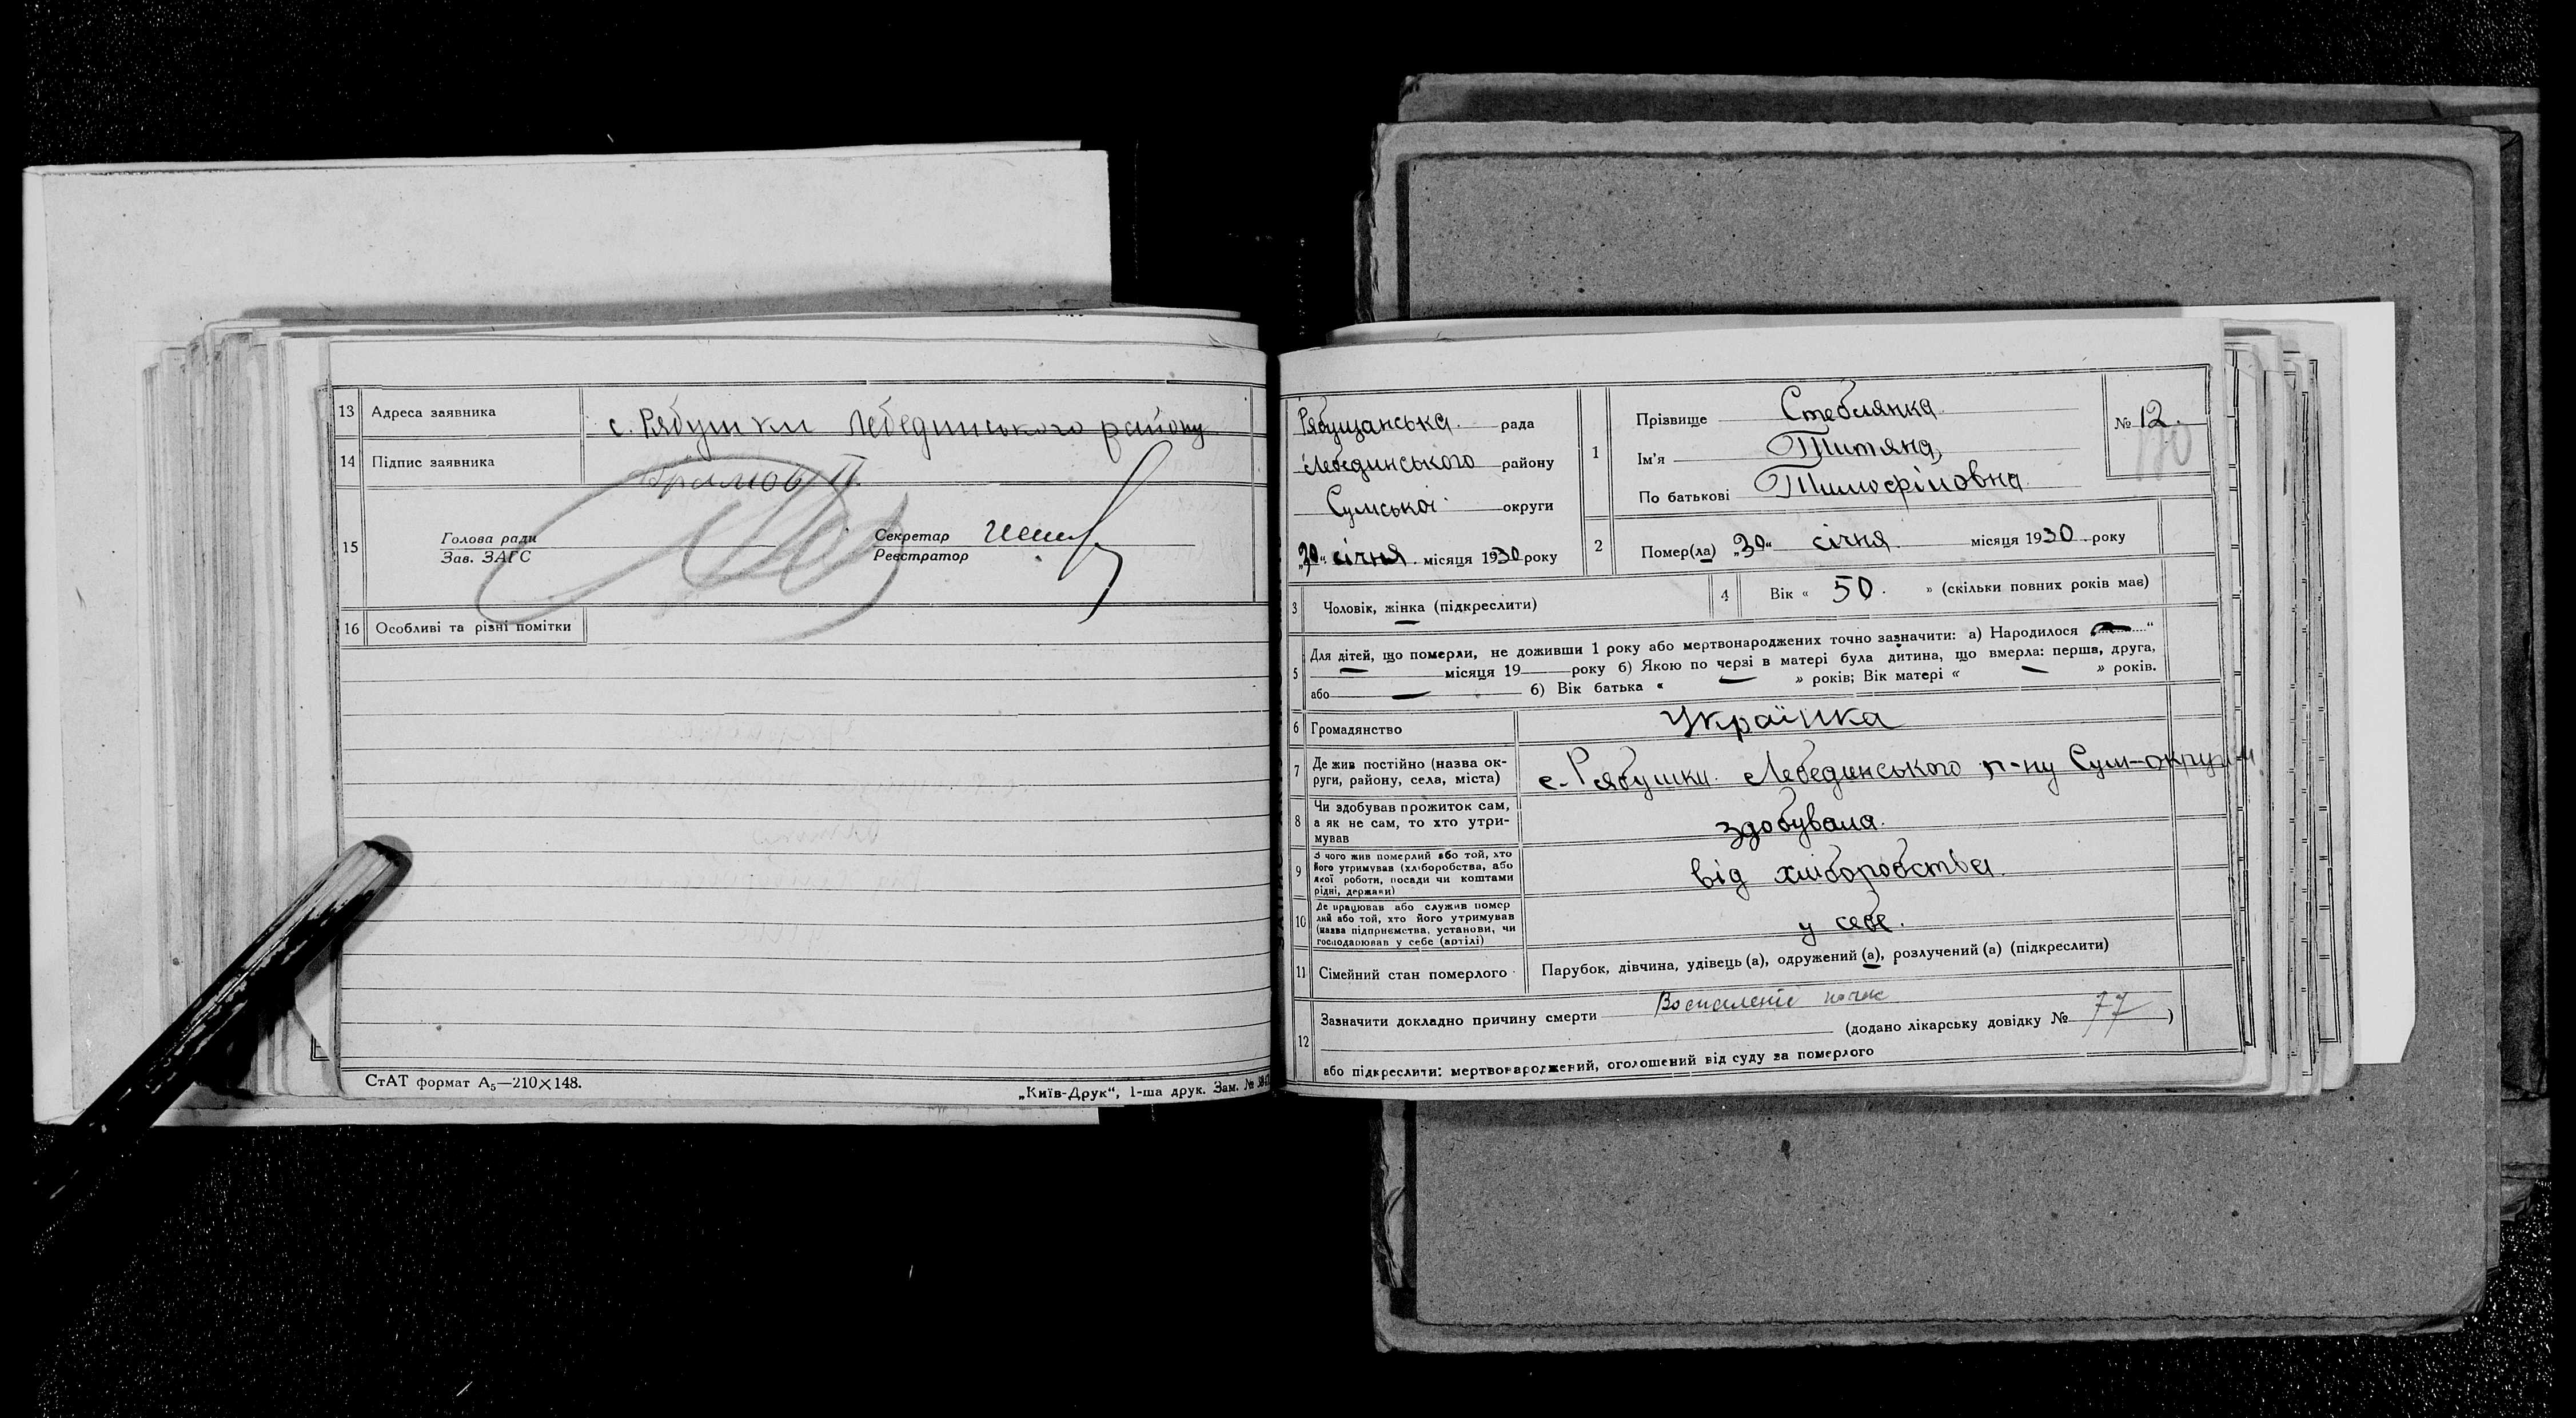 13 Адреса заявника с. Рябушки Лебединського району
14 Підпис заявника
15 Голова ради Секретар
Зав. ЗАГС Реєстратор
16 Особливі та різні помітки
СтАТ формат А₅—210×148.
„Київ-Друк“, 1-ша друк. Зам. №
Рябущанська рада
Лебединського району
Сумської округи
„30“ січня місяця 1930 року
1 Прізвище Стеблянка
Ім'я Титяна
По батькові Тимофіїовна
№ 12.
130
2 Помер(ла) „30“ січня місяця 1930 року
3 Чоловік, жінка (підкреслити)
4 Вік « 50. » (скільки повних років має)
5 Для дітей, що померли, не доживши 1 року або мертвонароджених точно зазначити: а) Народилося „ — “
— місяця 19 — року б) Якою по черзі в матері була дитина, що вмерла: перша, друга,
або — б) Вік батька « — » років; Вік матері « — » років.
6 Громадянство Українка
7 Де жив постійно (назва округи, району, села, міста) с. Рябушки Лебединського р-ну Сум-округи
8 Чи здобував прожиток сам,
а як не сам, то хто утримував здобувала.
9 З чого жив померлий або той, хто
його утримував (хліборобства, або
якої роботи, посади чи коштами
рідні, держави) від хліборобства.
10 Де працював або служив померлий або той, хто його утримував
(назва підприємства, установи, чи
господарював у себе (артілі) у себе.
11 Сімейний стан померлого Парубок, дівчина, удівець (а), одружений (а), розлучений (а) (підкреслити)
12 Зазначити докладно причину смерти Воспаленіе почек
(додано лікарську довідку № 77)
або підкреслити: мертвонароджений, оголошений від суду за померлого